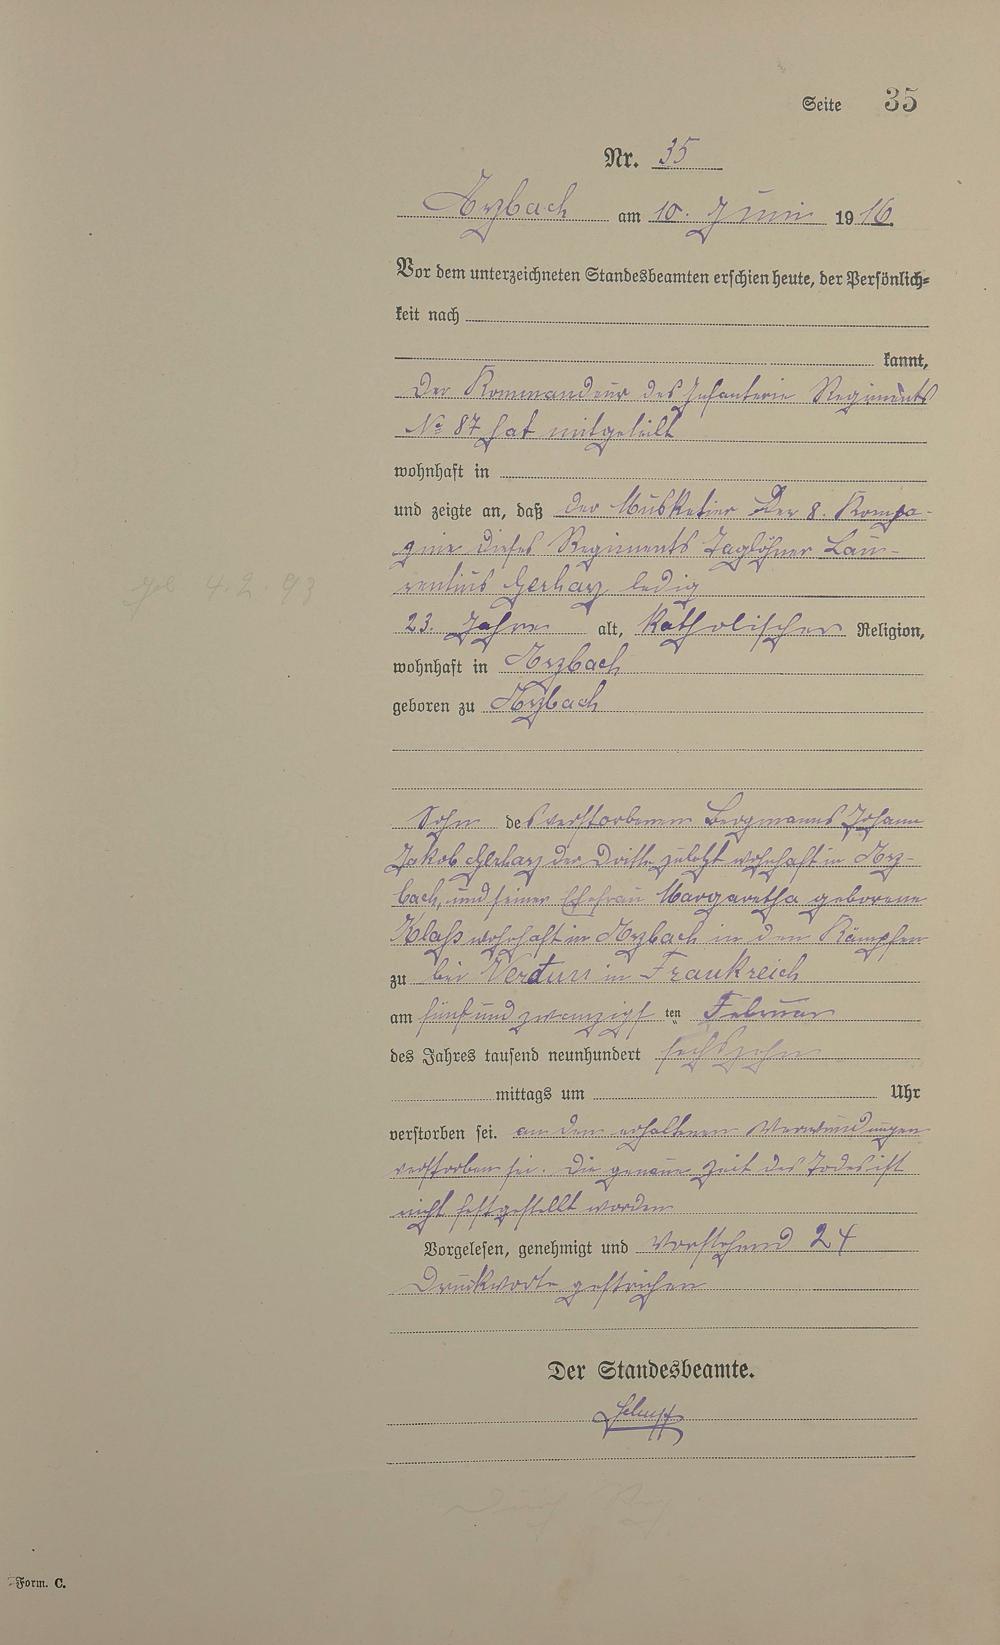 Seite 35
Nr. 35
Arzbach am 10. Juni 1916.
Vor dem unterzeichneten Standesbeamten erschien heute, der Persönlich=
keit nach
kannt,
Der Kommandeur des Infanterie Regiments
No 87 hat mitgeteilt
wohnhaft in
und zeigte an, daß der Musketier der 8. Kompa-
gnie dieses Regiments Taglöhner Lau-
rentius Gerharz, ledig
23. Jahre alt, katholischer Religion,
geb 4.2.93
wohnhaft in Arzbach
geboren zu Arzbach
Sohn des verstorbenen Bergmanns Johann
Jakob Gerharz der Dritte zuletzt wohnhaft in Arz-
bach, und seiner Ehefrau Margaretha geborene
Klaß wohnhaft in Arzbach in den Kämpfen
zu bei Verdun in Frankreich
am fünf und zwanzigsten Februar
des Jahres tausend neunhundert sechszehn
mittags um Uhr
verstorben sei. an den erhaltenen Verwundungen
verstorben sei. Die genaue Zeit des Todes ist
nicht festgestellt worden
Vorgelesen, genehmigt und Vorstehend 24
Druckworte gestrichen
Der Standesbeamte.
Form. C.